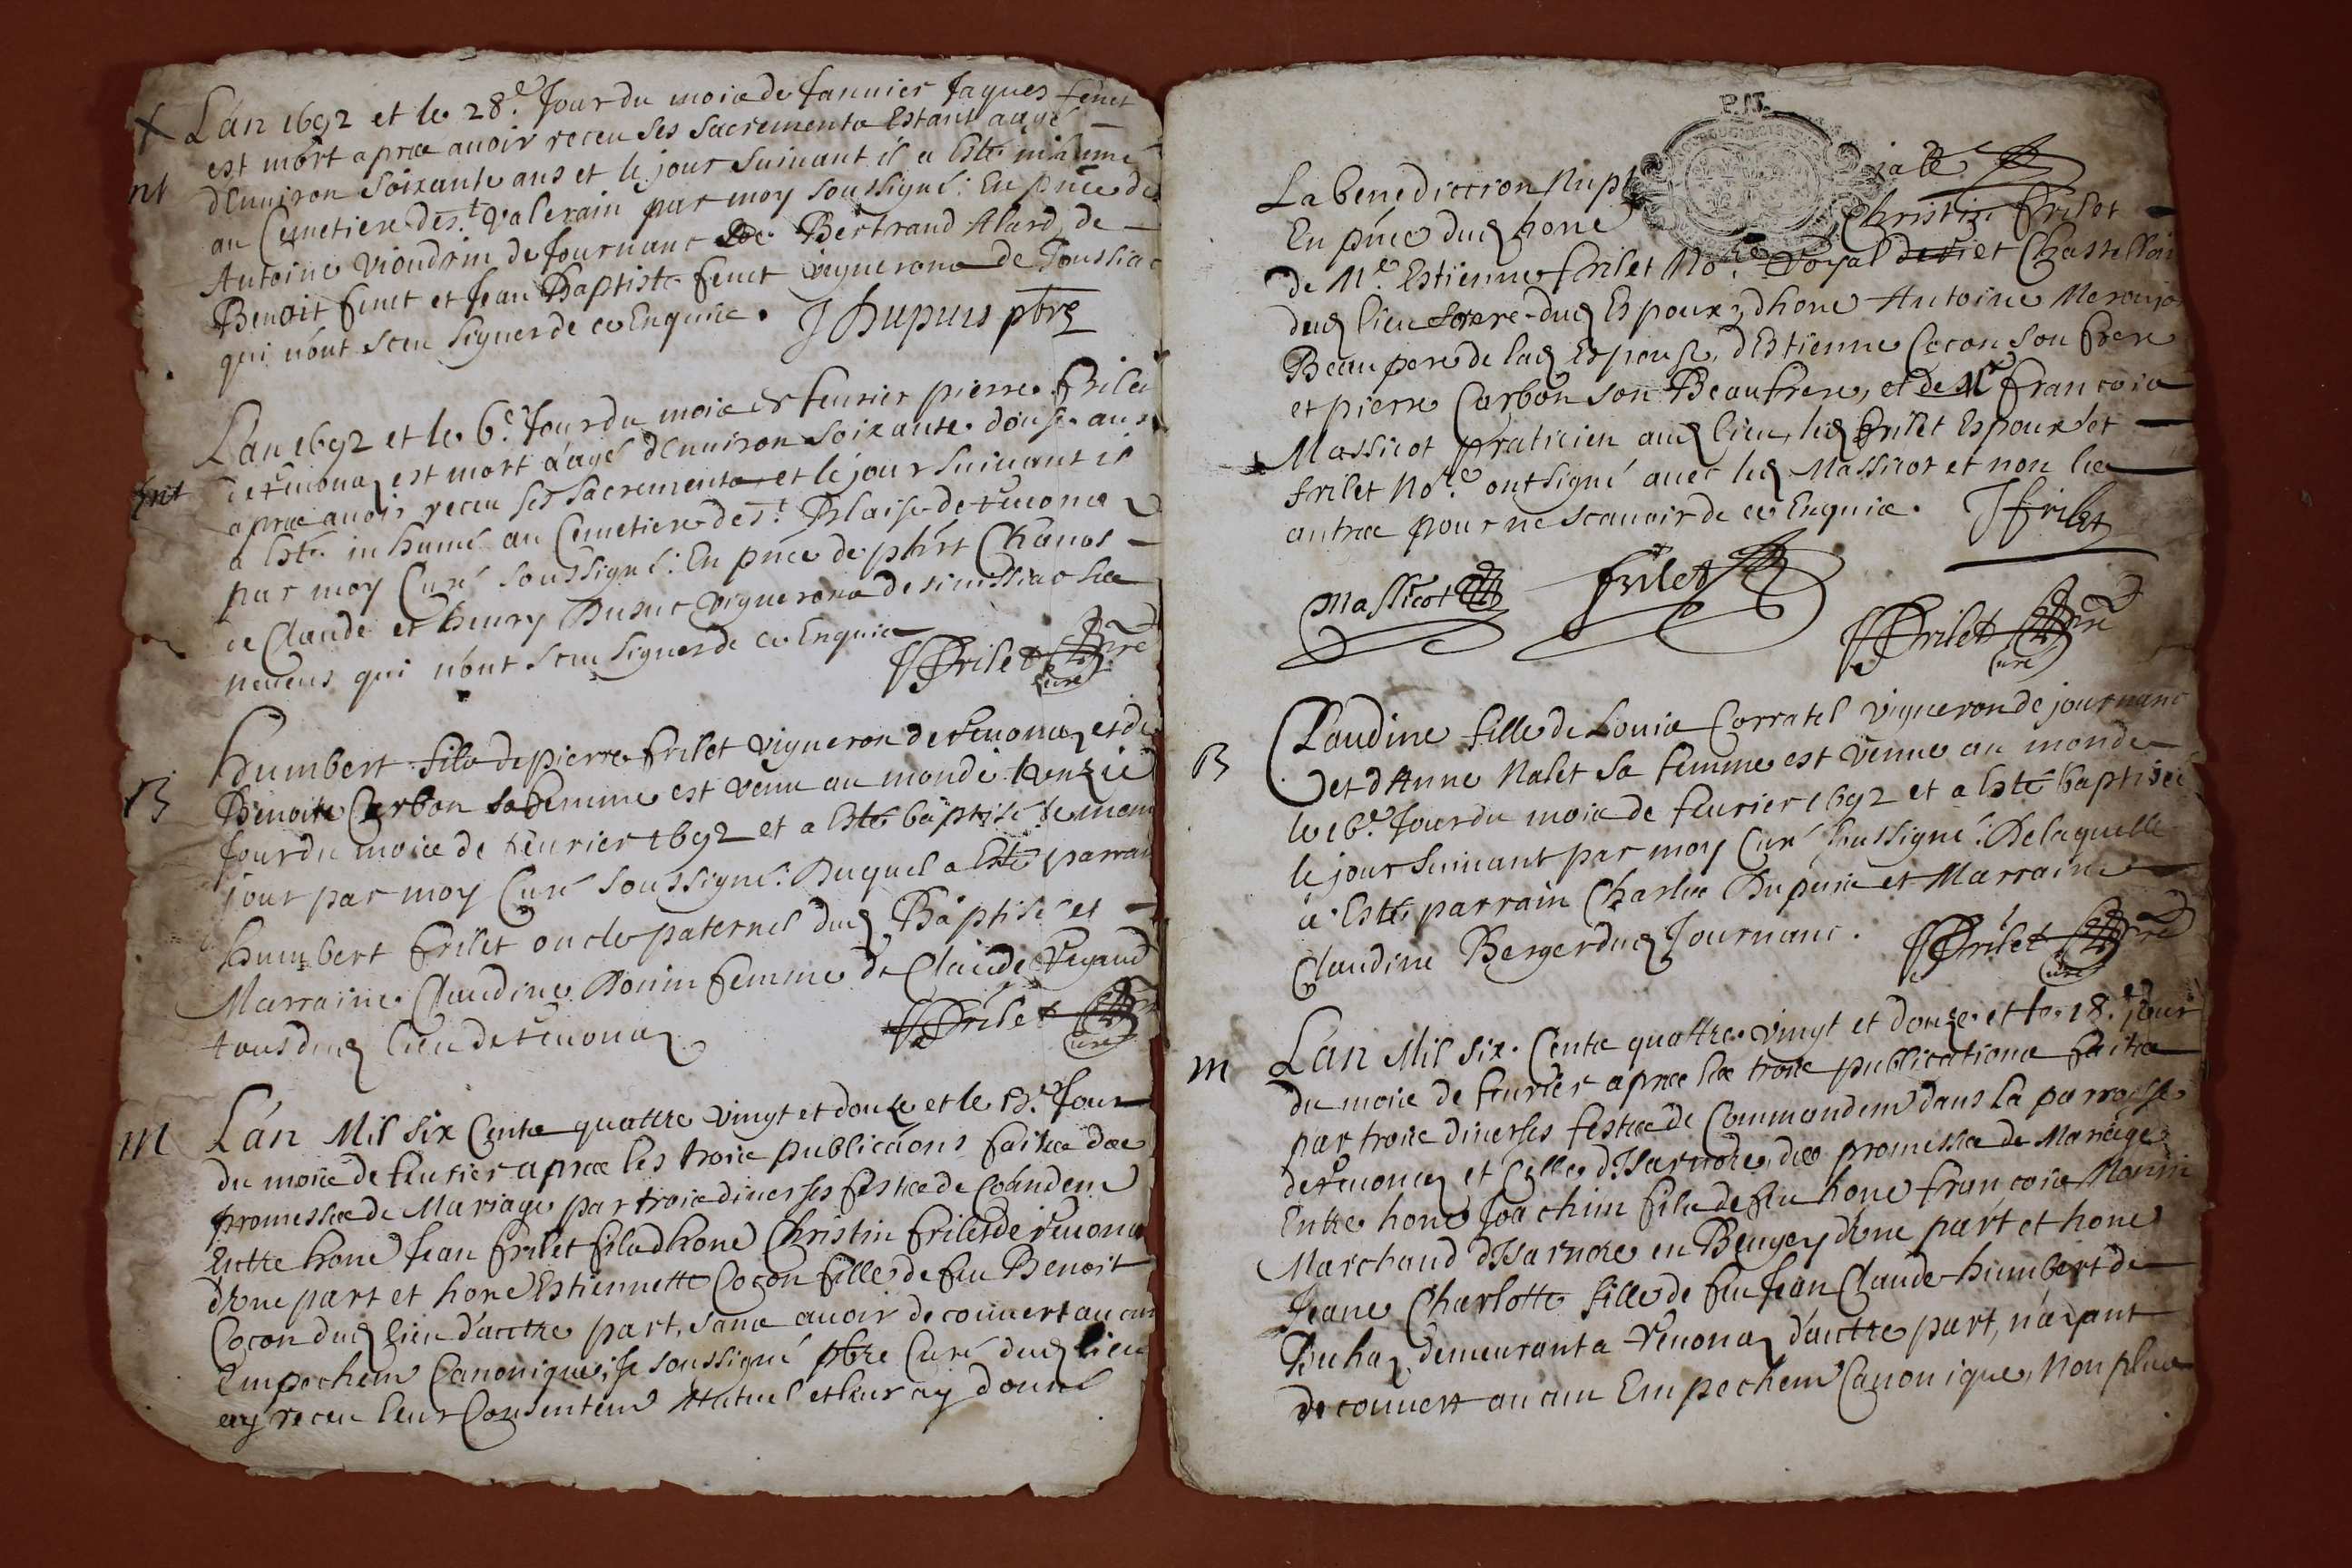 X L'an 1692 et le 28.e Jour du mois de Januier Jaques fenet
est mort apres auoir receu ses sacrements Estant aagé
nt d'Enuiron soixante ans et le jour suiuant il a Esté inhumé
au Cemetiere de s.t valerain par moy soussigné: En pñce de
Antoine vioudrin de Journanc de Bertrand Alard, de
Benoit fenet et Jean Baptiste fenet vignerons de Joussiac
qui n'ont sceu signer de ce Enquis. J Dupuis pbre
L'an 1692 et le 6.e Jour du mois de feurier pierre frilet
de reuonaz est mort a'agé d'Enuiron soixante douse ans
Ent apres auoir receu ses sacrements et le jour suiuant il
a Esté inhumé au Cemetiere de s.t Blaise de reuonas
par moy Curé soussigné: En pñce de phért Chanal
de Claude et henry Dusuc vignerons de simissiac ses
neueus qui n'ont sceu signer de ce Enquis
JFrilet pbre
curé
B humbert fils de pierre frilet vigneron de reuonaz et de
Benoite Carbon sa femme est venu au monde l'onzie
Jour du mois de feurier 1692 et a esté baptisé le mem
jour par moy Curé soussigné: Duquel a Esté parrain
humbert frilet oncle paternel dud Baptisé et
Marraine Claudine Bonin femme de Claude
tous dud lieu de reuonaz JFrilet pbre
curé
m L'an Mil six Cents quattre vingt et douze et le 13.e Jour
du mois de feurier apres les trois publicaõns faites des
promesses de Mariage par trois diuerses festes de Coṁdem
Entre hone Jean frilet fils d'hone Christin frilet de reuona
d'vne part et hone Estiennette Coçon fille de feu Benoit
Coçon dud lieu d'auttre part, sans auoir decouuert aucun
Empechem Canonique, Je soussigné pbre Curé dud lieu
ay receu leur Consentem Mutuel et leur ay donné
P.IT.
La benediction Nupt iale
En pñce dud hone Christin frilet
de M.e Estienne frilet No.re Royal et Chastellain
dud lieu frere dud Espoux, d'hone Antoine
Beaupere de lad Espouse, d'Estienne Coçon son frere
et pierre Carbon son Beaufrere, et de M.e francois
Massicot praticien aud lieu, led frilet Espoux et
frilet No.re ont signé auec led Massicot et non les
autres pour ne scauoir de ce Enquis. J frilet
Massicot frilet
JFrilet pbre
curé
B Claudine fille de Louis Corratel vigneron de journanc
et d'Anne Nalet sa femme est venue au monde
le 16.e Jour du mois de feurier 1692 et a esté baptisée
le jour suiuant par moy Curé soussigné: De laquelle
a Esté parrain Charles Dupuis et Marraine
Claudine Berger dud Journanc. JFrilet pbre
curé
m L'an Mil six Cents quattre vingt et douze et le 18.e Jour
du mois de feurier apres les trois publications faites
par trois diuerses festes de Commandem dans la parroisse
de reuonaz et Celle d'Isarnore, des promesses de Mariage
Entre hone Joachim fils de feu hone francois
Marchand d'Isarnore en Beugey d'vne part et hone
Jeane Charlotte fille de feu Jean Claude humbert de
Buhaz demeurant a reuonaz d'auttre part, n'ayant
decouuert aucun Empechem Canonique, Non plus